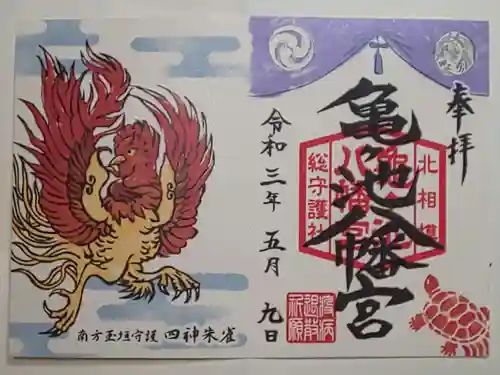 奉拝
亀ヶ池八幡宮
北相模
総守護社
亀ヶ池
八幡宮
令和三年五月九日
疫病
退散
祈願
南方玉垣守護 四神朱雀